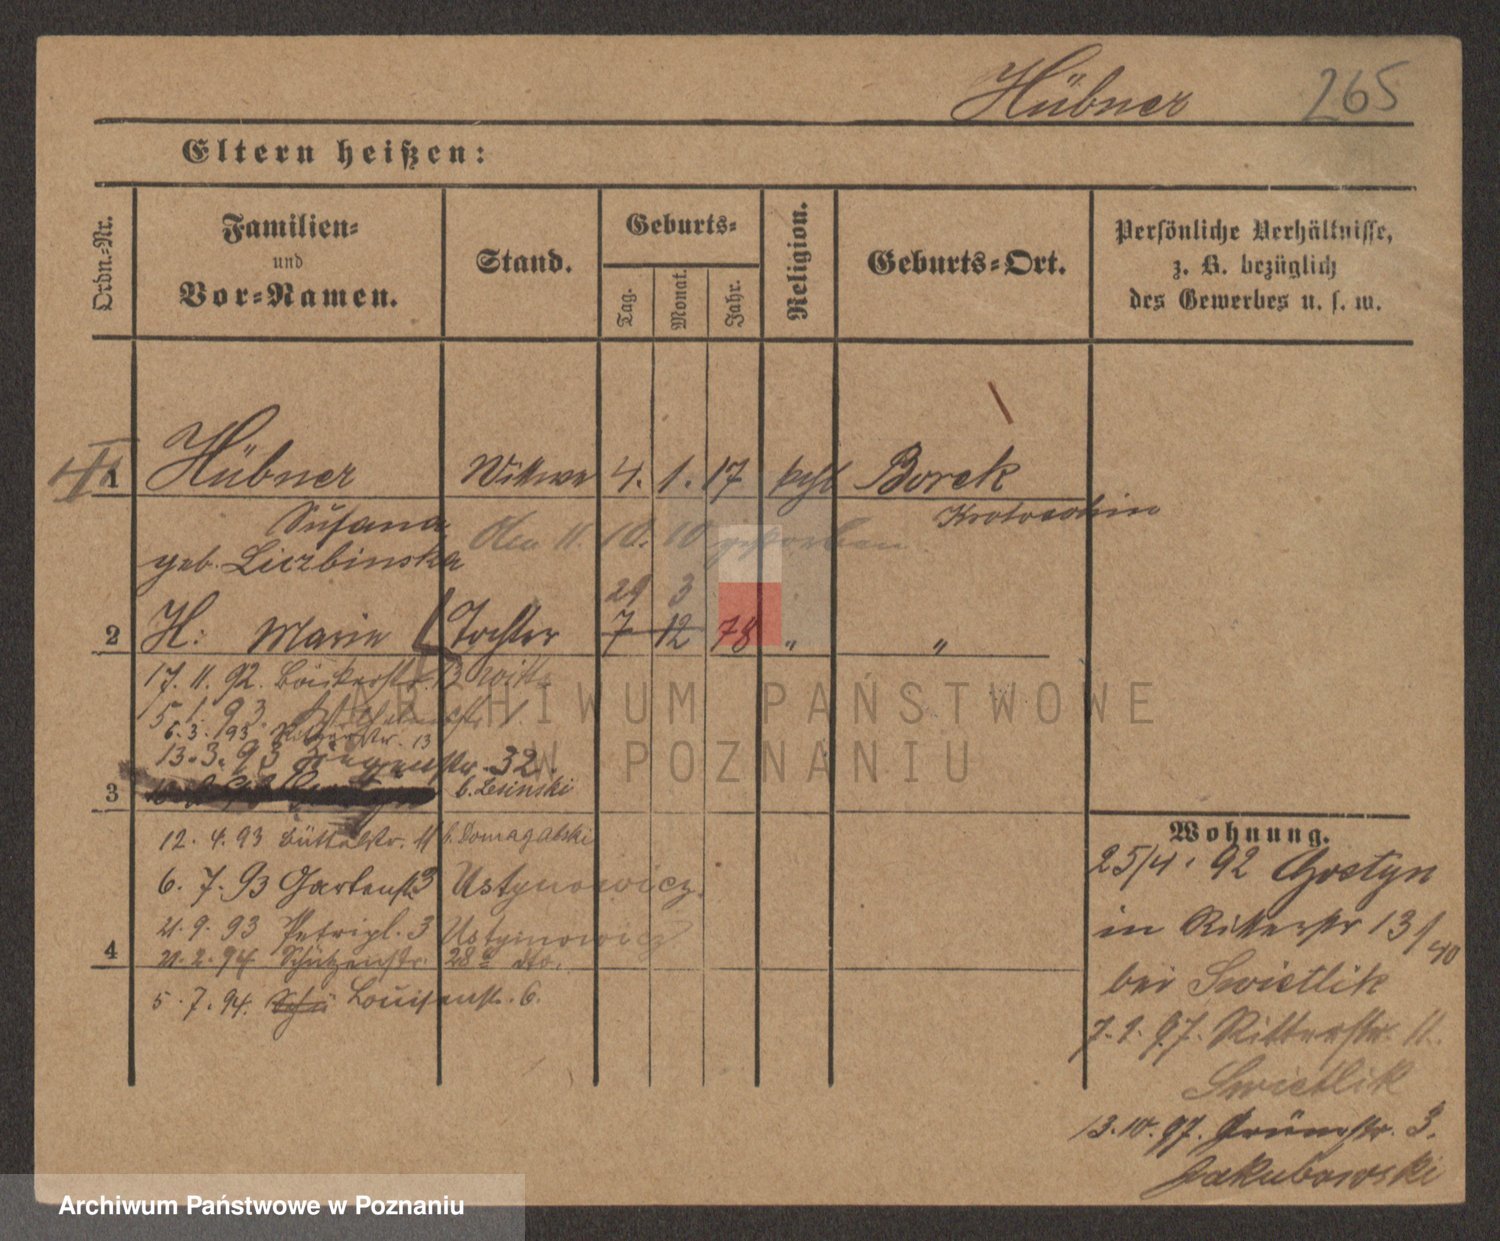 Hübner 265
Eltern heißen:
Ordn.-Nr.
Familien-
und
Vor-Namen.
Stand.
Geburts-
Tag.
Monat.
Jahr.
Religion.
Geburts-Ort.
Persönliche Verhältnisse,
z. B. bezüglich
des Gewerbes u. s. w.
1 Hübner Wittwe 4. 1. 17 kath Borek
Susana Krotoschin
den 11. 10. 10 gestorben
geb. Liczbinska
29 3
2 H: Marie Tochter 7 12 78 " "
17. 11. 92. Bäckerstr. 13
5. 1. 93.
6.3.193 Ritterstr. 13
13.3.93 32.
3 b. Lesinski
12. 4. 93 11 b. Domagalski
6. 7. 93 Gartenstr 3 Ustynowicz.
21. 9. 93 Petripl. 3 Ustynowicz
4 21. 2. 94 Schützenstr. 28a dto.
5. 7. 94. Schü Louisenstr. 6.
Wohnung.
25/4. 92 Gostyn
in Ritterstr 13/40
bei Swietlik
7. 1. 97. Ritterstr. 11.
Swietlik
13. 10. 97. Grünestr. 3.
Jakubowski
ARCHIWUM PAŃSTWOWE
W POZNANIU
Archiwum Państwowe w Poznaniu